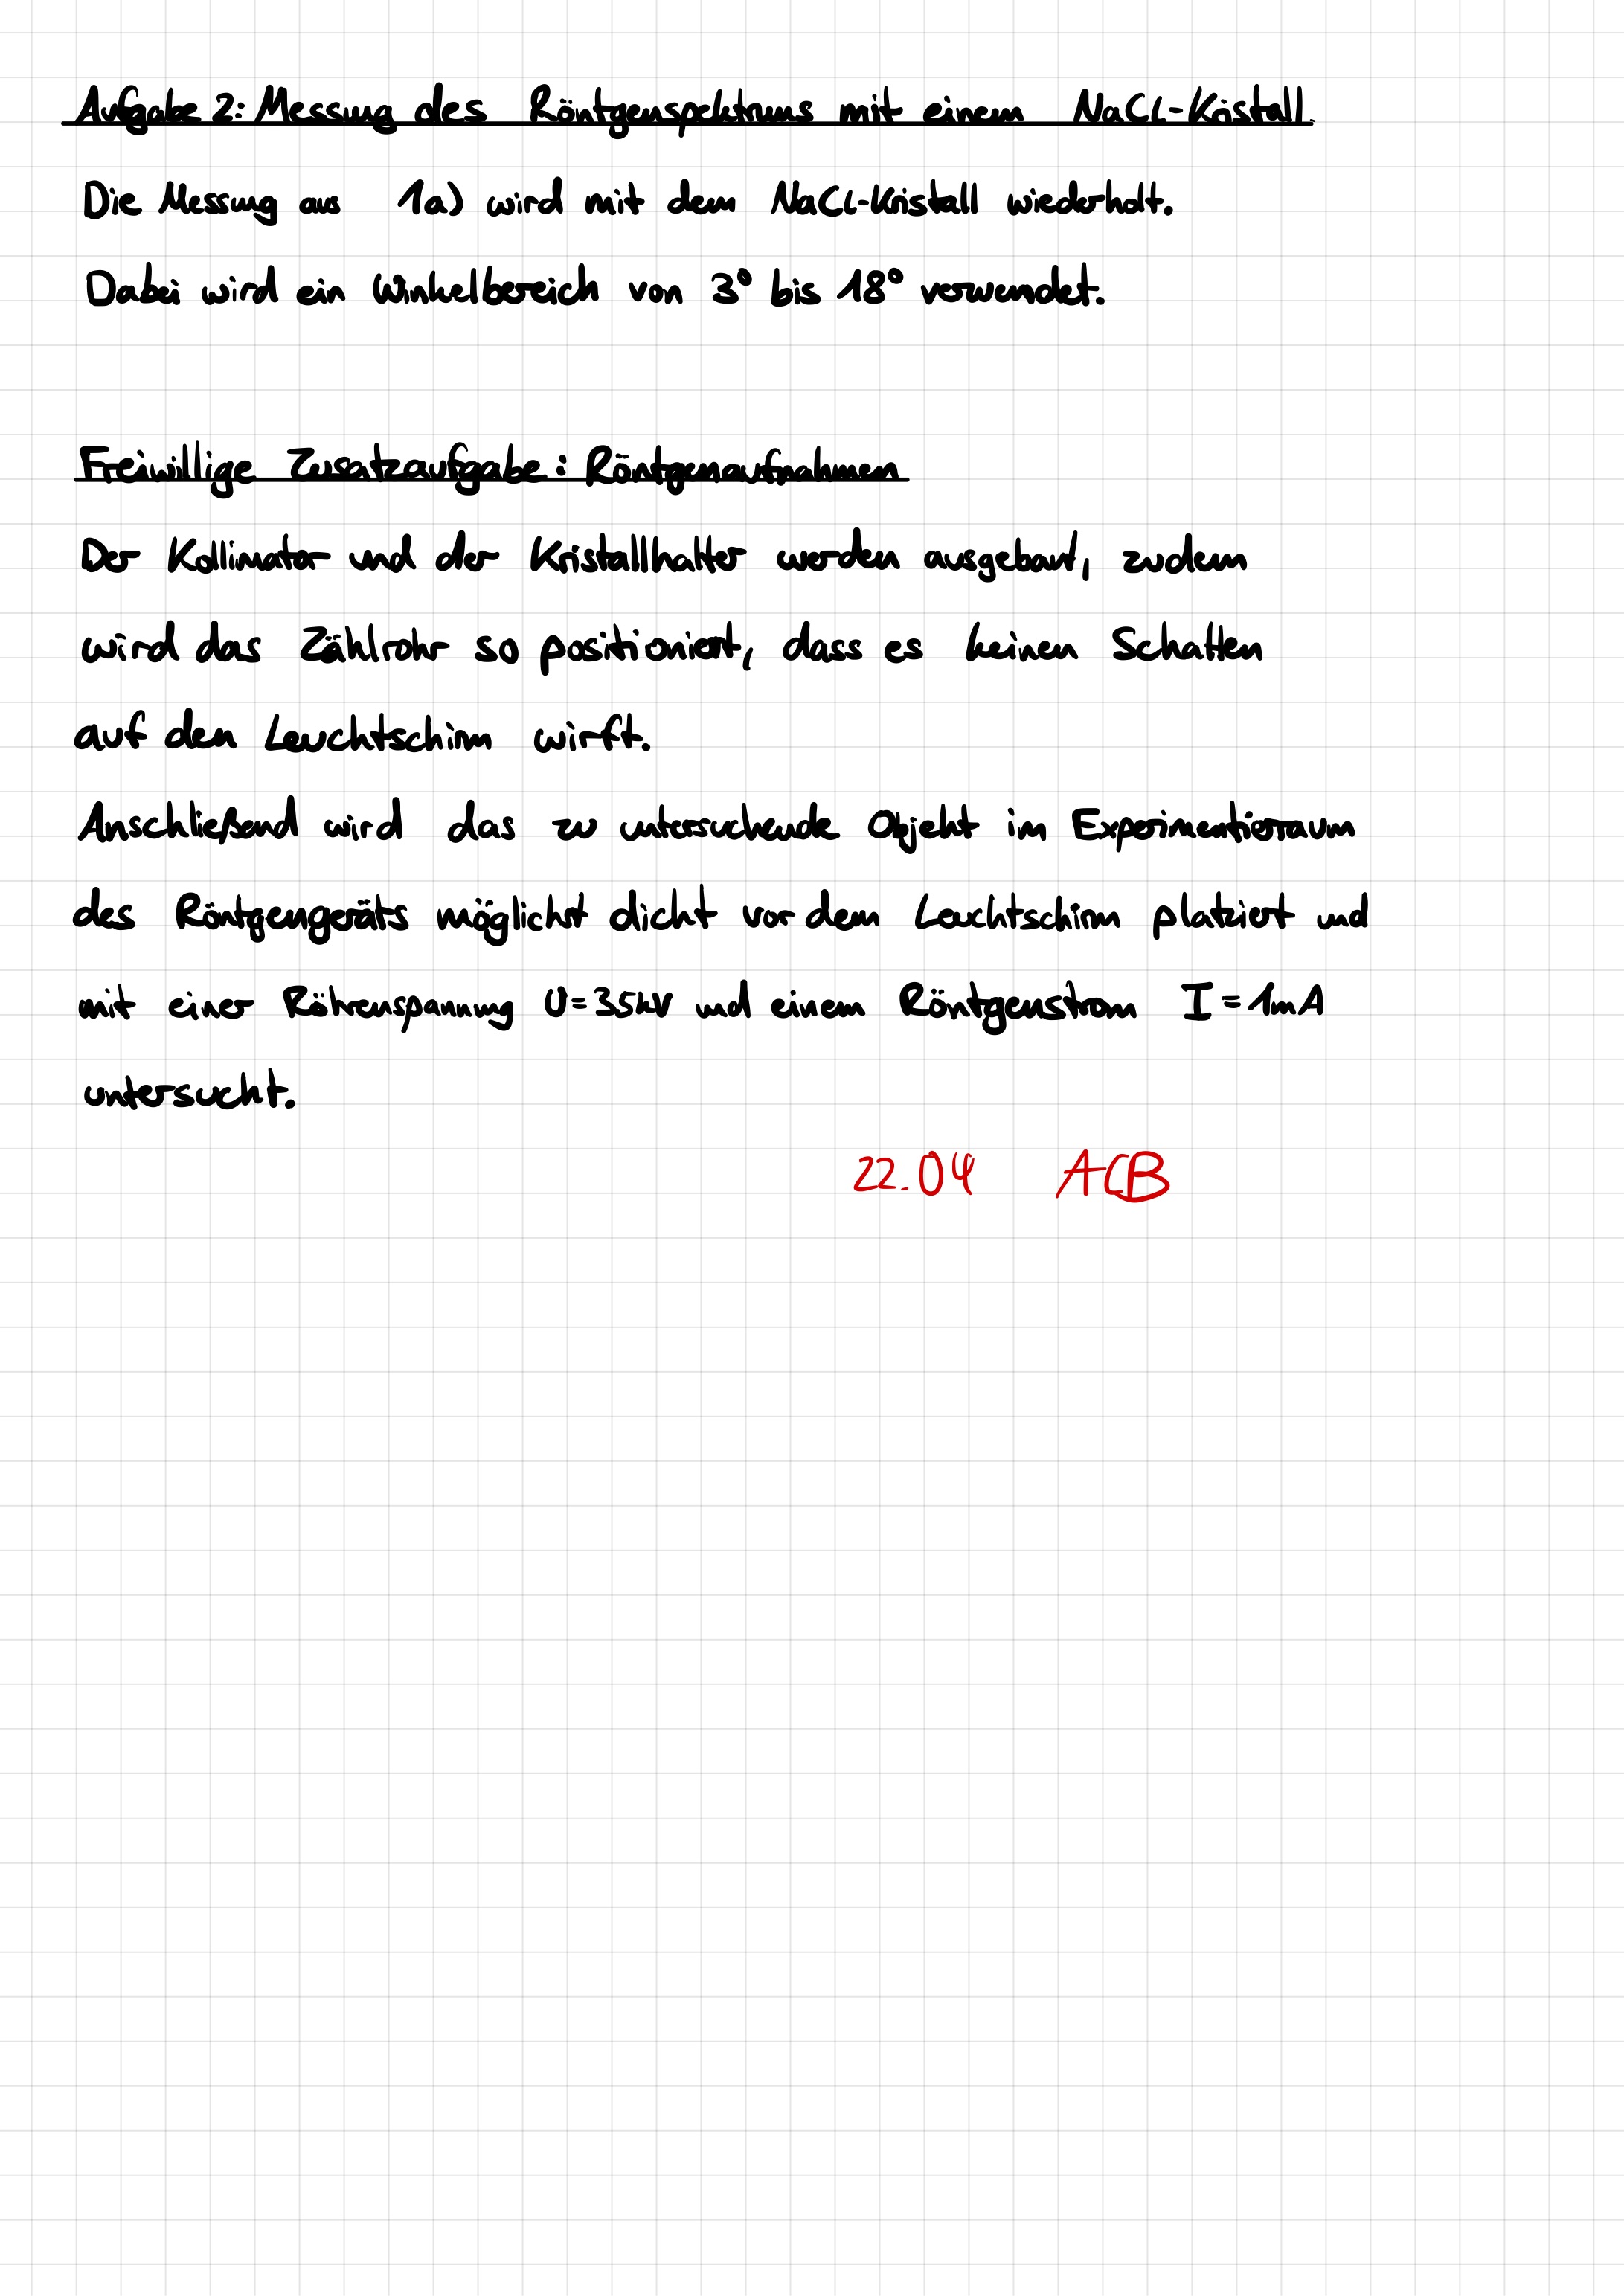 Aufgabe 2: Messung des Röntgenspektrums mit einem NaCl-Kristall
Die Messung aus 1a) wird mit dem NaCl-Kristall wiederholt.
Dabei wird ein Winkelbereich von 3° bis 18° verwendet.
Freiwillige Zusatzaufgabe: Röntgenaufnahmen
Der Kollimator und der Kristallhalter werden ausgebaut, zudem
wird das Zählrohr so positioniert, dass es keinen Schatten
auf den Leuchtschirm wirft.
Anschließend wird das zu untersuchende Objekt im Experimentierraum
des Röntgengeräts möglichst dicht vor dem Leuchtschirm platziert und
mit einer Röhrenspannung U=35kV und einem Röntgenstrom I=1mA
untersucht.
22.04 ACB